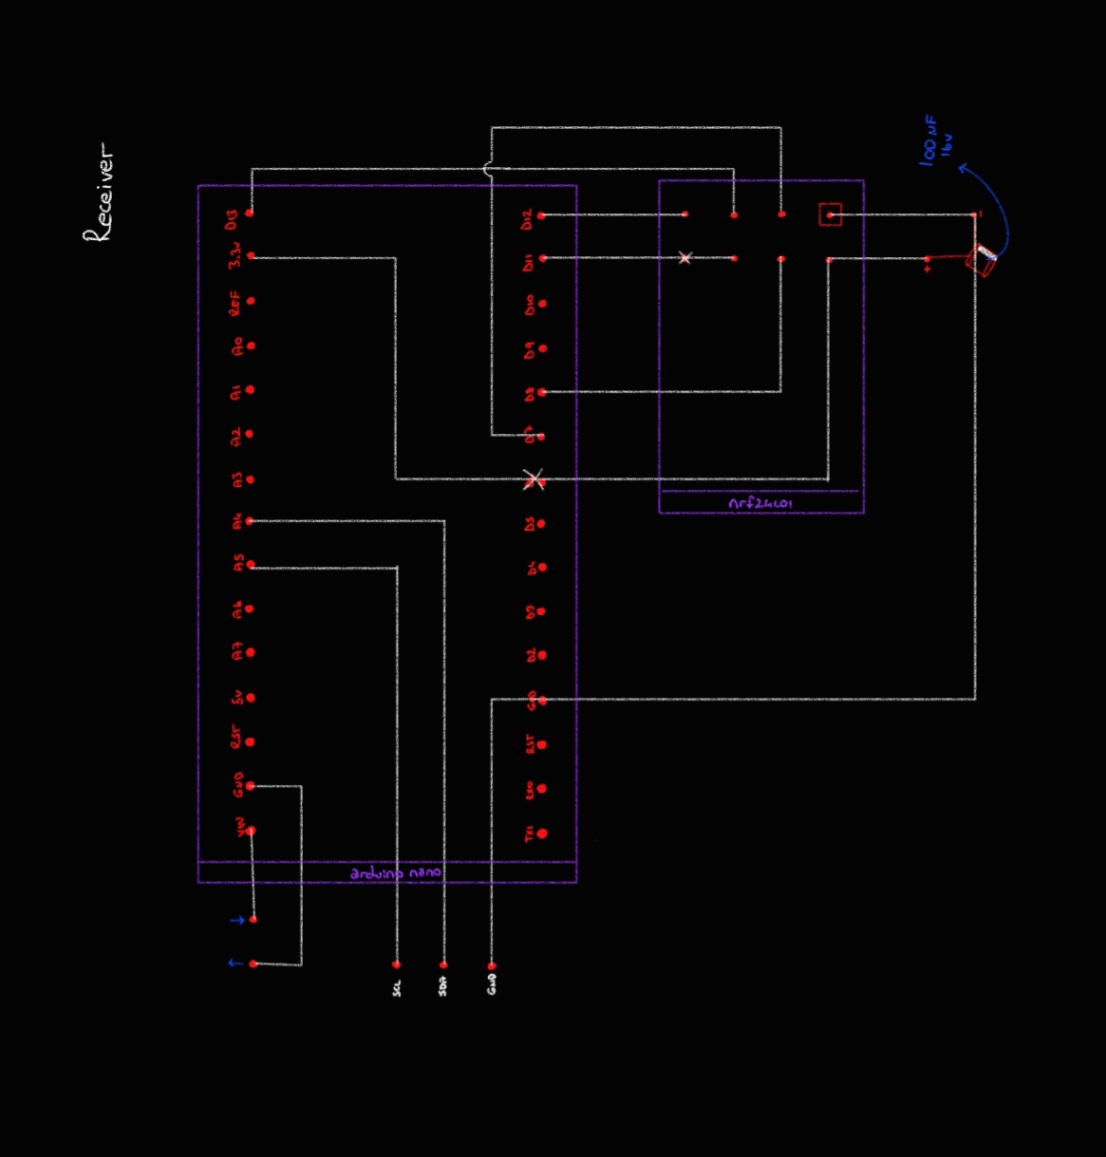 Receiver
↑ ↓
VIN GND RST 5V A7 A6 A5 A4 A3 A2 A1 A0 REF 3.3v D13
arduino nano
SCL
SDA
GND
TX1 RX0 RST GND D2 D3 D4 D5 D7 D8 D9 D10 D11 D12
nrf24l01
+
-
100µF
16v